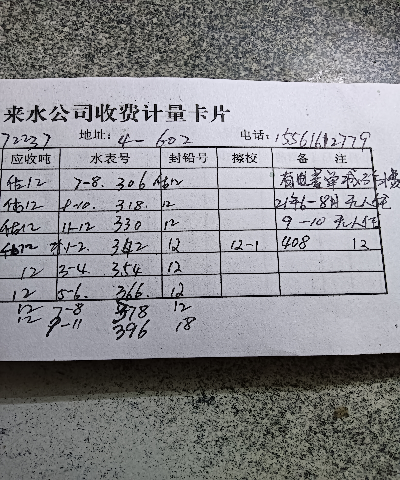 来水公司收费计量卡片
72237 地址: 4-602 电话: 15561612779
应收吨 水表号 封铅号 擦校 备 注
估12 7-8. 306 估12
估12 9-10. 318. 12 21年6-8月无人
估12 11-12 330 12 9-10无人
估12 1-2. 342 12 12-1 408 12
12 3-4. 354 12
12 5-6. 366. 12
12 7-8 378 12
12 9-11 396 18